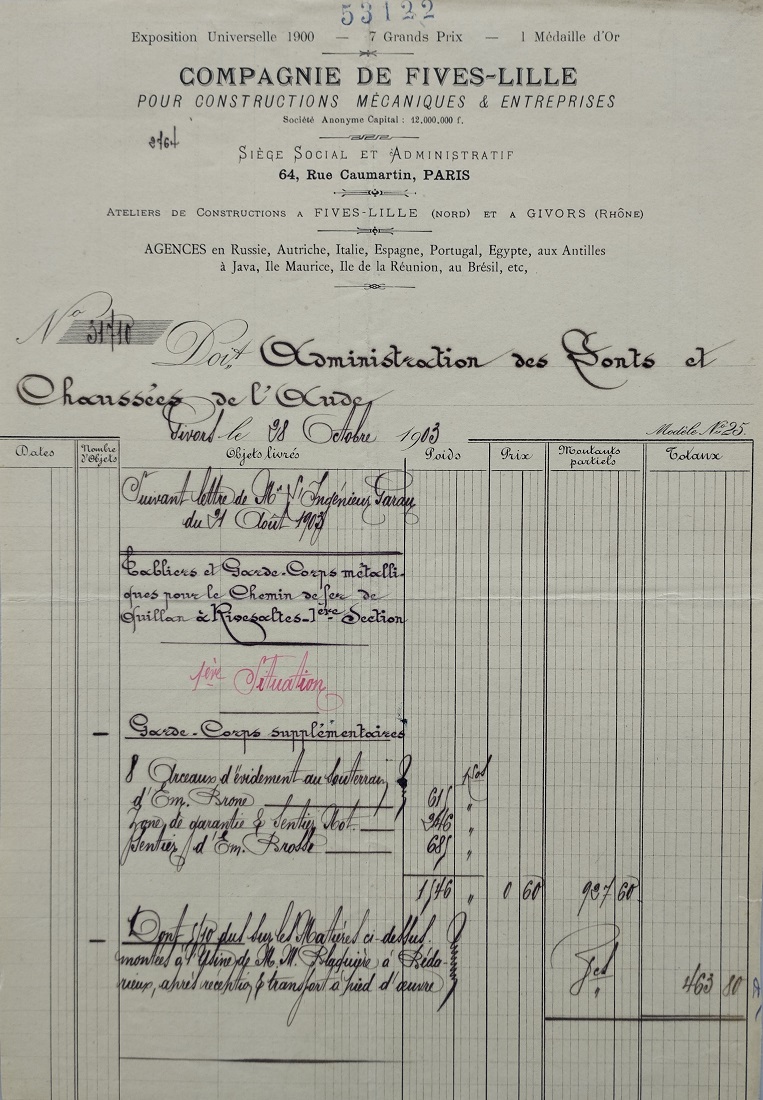 53122
Exposition Universelle 1900 — 7 Grands Prix — 1 Médaille d'Or
COMPAGNIE DE FIVES-LILLE
POUR CONSTRUCTIONS MÉCANIQUES & ENTREPRISES
Société Anonyme Capital : 12,000,000 f.
SIÈGE SOCIAL ET ADMINISTRATIF
64, Rue Caumartin, PARIS
ATELIERS DE CONSTRUCTIONS A FIVES-LILLE (NORD) ET A GIVORS (RHÔNE)
AGENCES en Russie, Autriche, Italie, Espagne, Portugal, Egypte, aux Antilles
à Java, Ile Maurice, Ile de la Réunion, au Brésil, etc,
No 31710 Doit, Administration des Ponts et
Chaussées de l'Aude
Givors le 28 Octobre 1903
Modèle No 25.
Dates Nombre d'Objets Objets livrés Poids Prix Montants partiels Totaux
Suivant lettre de Mr l'Ingénieur Garau
du 21 Août 1903
Tabliers et Garde-Corps métalli-
ques pour le Chemin de fer de
Quillan à Rivesaltes-1ère Section
1ère Situation
Garde-Corps supplémentaires
8 Arceaux d'évidement au souterrain
d'Em. Brone 615 "
Zone de garantie & Sentier Not. 246 "
Sentier d'Em. Brosse 685 "
1546 " 0 60 927 60
Dont 5/10 dus sur les Matières ci-dessus.
montées à l'Usine de M.M. Blaquière à Béda-
rieux, après réception & transport à pied d'œuvre 463 80